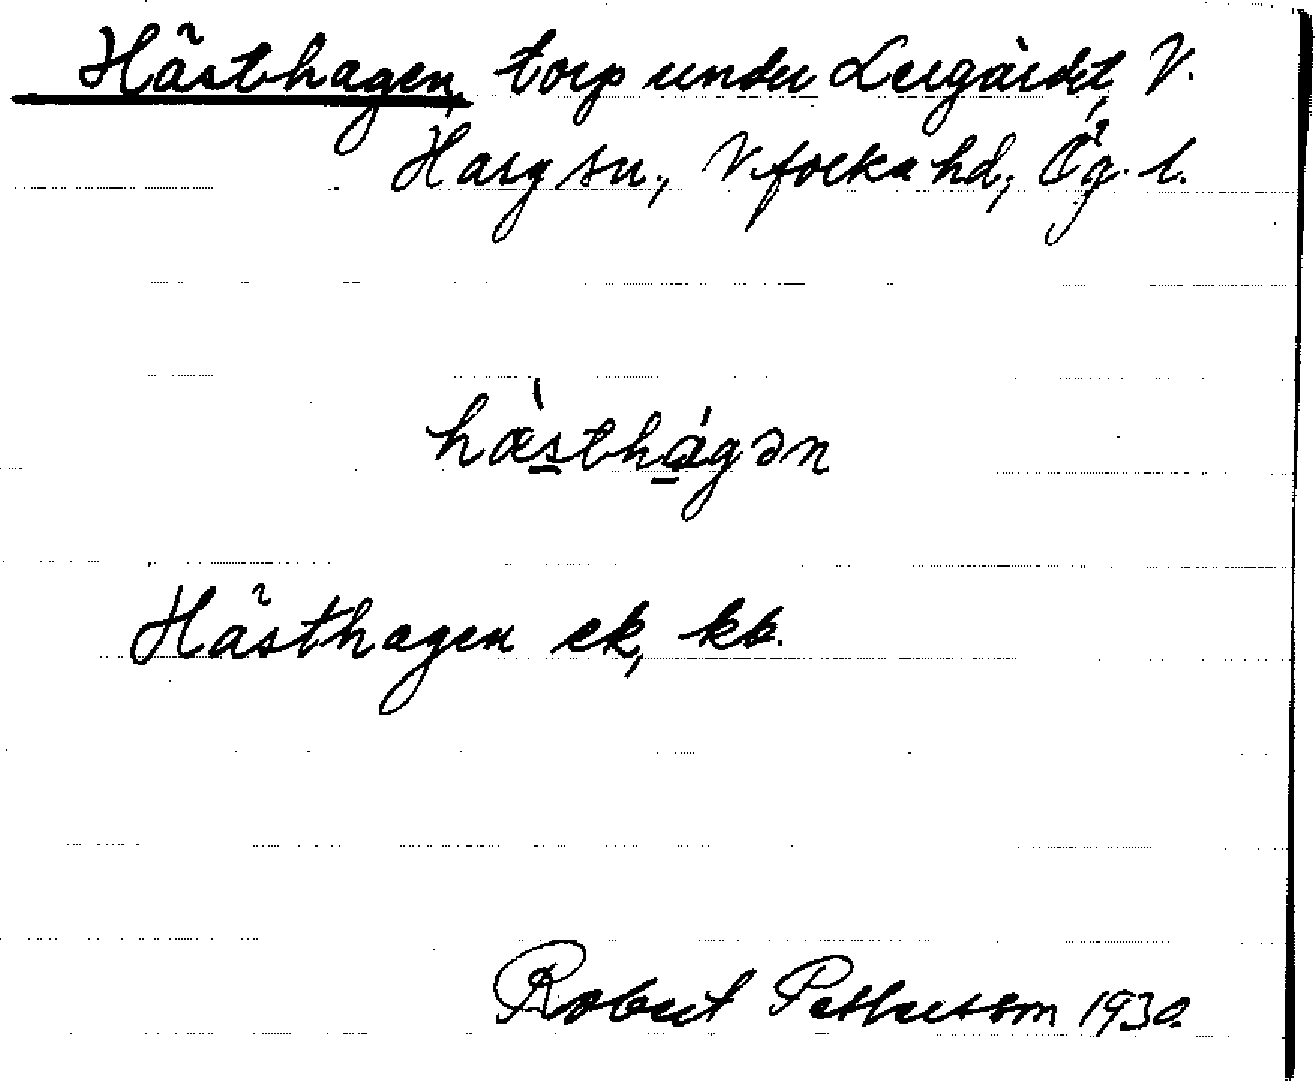 Hästhagen, torp under Lergärdet, V.
Harg sn., Vifolka hd, Ög. l.
hæ̀sthágən
Hästhagen ek, kb.
Robert Pettersson 1930.